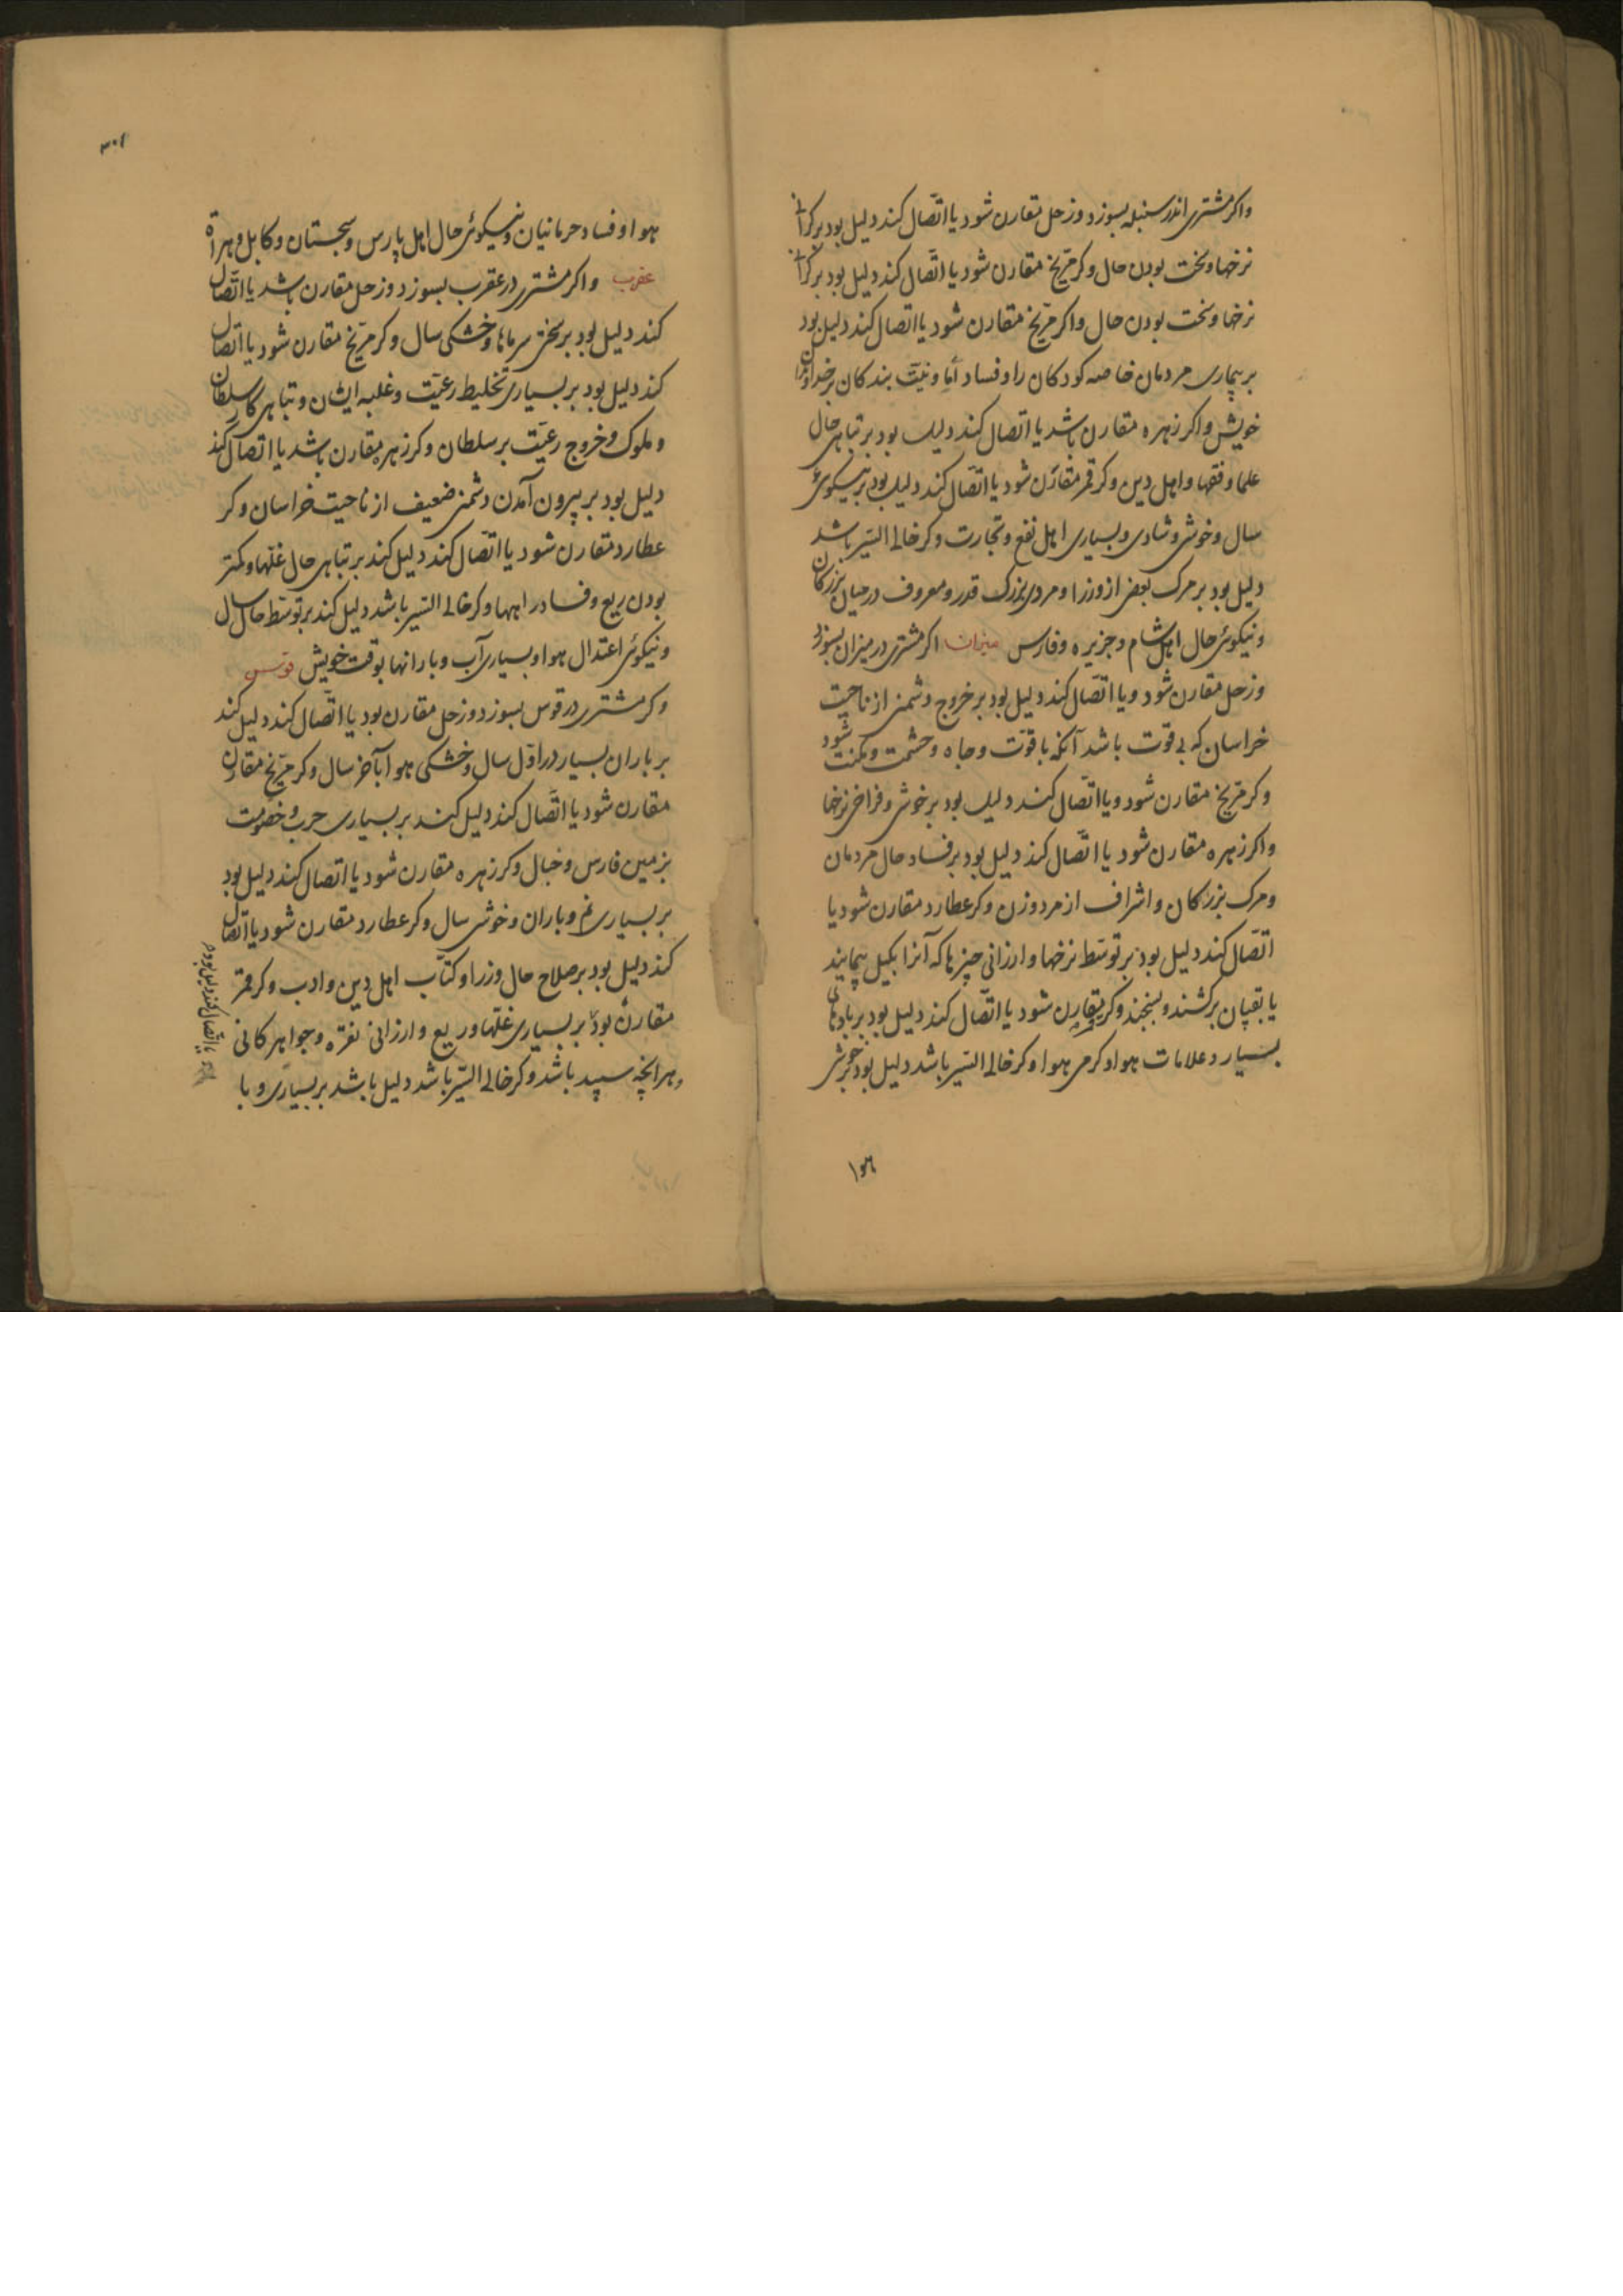 واکر مشتری اندر سنبله بسوزد و زحل مقارن شود یا اتّصال کند دلیل بود بر کرانی
نرخها و سخت بودن حال و کر مرّیخ مقارن شود یا اتّصال کند دلیل بود بر کرانی
نرخها و سخت بودن حال واکر مرّیخ مقارن شود یا اتصال کند دلیل بود
بر بیماری مردمان خاصه کودکان را و فساد و نیّت بندکان بر خداوندان
خویش واکر زهره مقارن باشد یا اتصال کند دلیل بود بر تباهی حال
علما و فقها و اهل دین و کر قمر مقارن شود یا اتّصال کند دلیل بود بر نیکوئی
سال و خوشی و شادی و بسیاری اهل نفع و تجارت و کر خالی السّیر باشد
دلیل بود بر مرک بعضی از وزرا و مردی بزرک قدر و معروف در میان بزرکان
و نیکوئی حال اهل شام و جزیره و فارس میزان اکر مشتری در میزان بسوزد
و زحل مقارن شود و یا اتّصال کند دلیل بود بر خروج دشمنی از ناحیت
خراسان که بی قوت باشد آنکه با قوّت و جاه و حشمت و مکنت شود
و کر مرّیخ مقارن شود و یا اتّصال کند دلیل بود بر خوشی و فراخی نرخها
واکر زهره مقارن شود یا اتّصال کند دلیل بود بر فساد حال مردمان
و مرک بزرکان و اشراف از مرد و زن و کر عطارد مقارن شود یا
اتّصال کند دلیل بود بر توسّط نرخها و ارزانی چیزها که آنرا بکیل پیمایند
یا بقپان برکشند و بسنجند و کر قمر مقارن شود یا اتّصال کند دلیل بود بر بادهای
بسیار و علامات هوا و کرمی هوا و کر خالی السّیر باشد دلیل بود بر خوشی
هوا
۳۰۱
هوا و فساد حرمانیان و نیکوئی حال اهل پارس و سجستان و کابل و هراة
عقرب واکر مشتری در عقرب بسوزد و زحل مقارن باشد یا اتّصال
کند دلیل بود بر سختی سرماها و خشکی سال و کر مرّیخ مقارن شود یا اتصال
کند دلیل بود بر بسیاری تخلیط رعیّت و غلبه ایشان و تباهی کار سلطان
و ملوک و خروج رعیّت بر سلطان و کر زهره مقارن باشد یا اتصال کند
دلیل بود بر بیرون آمدن دشمنی ضعیف از ناحیت خراسان و کر
عطارد مقارن شود یا اتّصال کند دلیل کند بر تباهی حال غلّها و کمتر
بودن ریع و فساد راهها و کر خالی السّیر باشد دلیل کند بر توسّط حال سال
و نیکوئی اعتدال هوا و بسیاری آب و بارانها بوقت خویش قوس
و کر مشتری در قوس بسوزد و زحل مقارن بود یا اتّصال کند دلیل کند
بر باران بسیار در اوّل سال و خشکی هوا بآخر سال و کر مرّیخ مقارن
مقارن شود یا اتّصال کند دلیل کند بر بسیاری حرب و خصومت
بزمین فارس و جبال و کر زهره مقارن شود یا اتصال کند دلیل بود
بر بسیاری نم و باران و خوشی سال و کر عطارد مقارن شود یا اتصال
کند دلیل بود بر صلاح حال وزرا و کتّاب اهل دین و ادب و کر قمر
مقارن بود بر بسیاری غلّها و ریع و ارزانی نقره و جواهر کانی
و هر انچه سپید باشد و کر خالی السّیر باشد دلیل باشد بر بسیاری وبا
یا اتصال کند دلیل بود